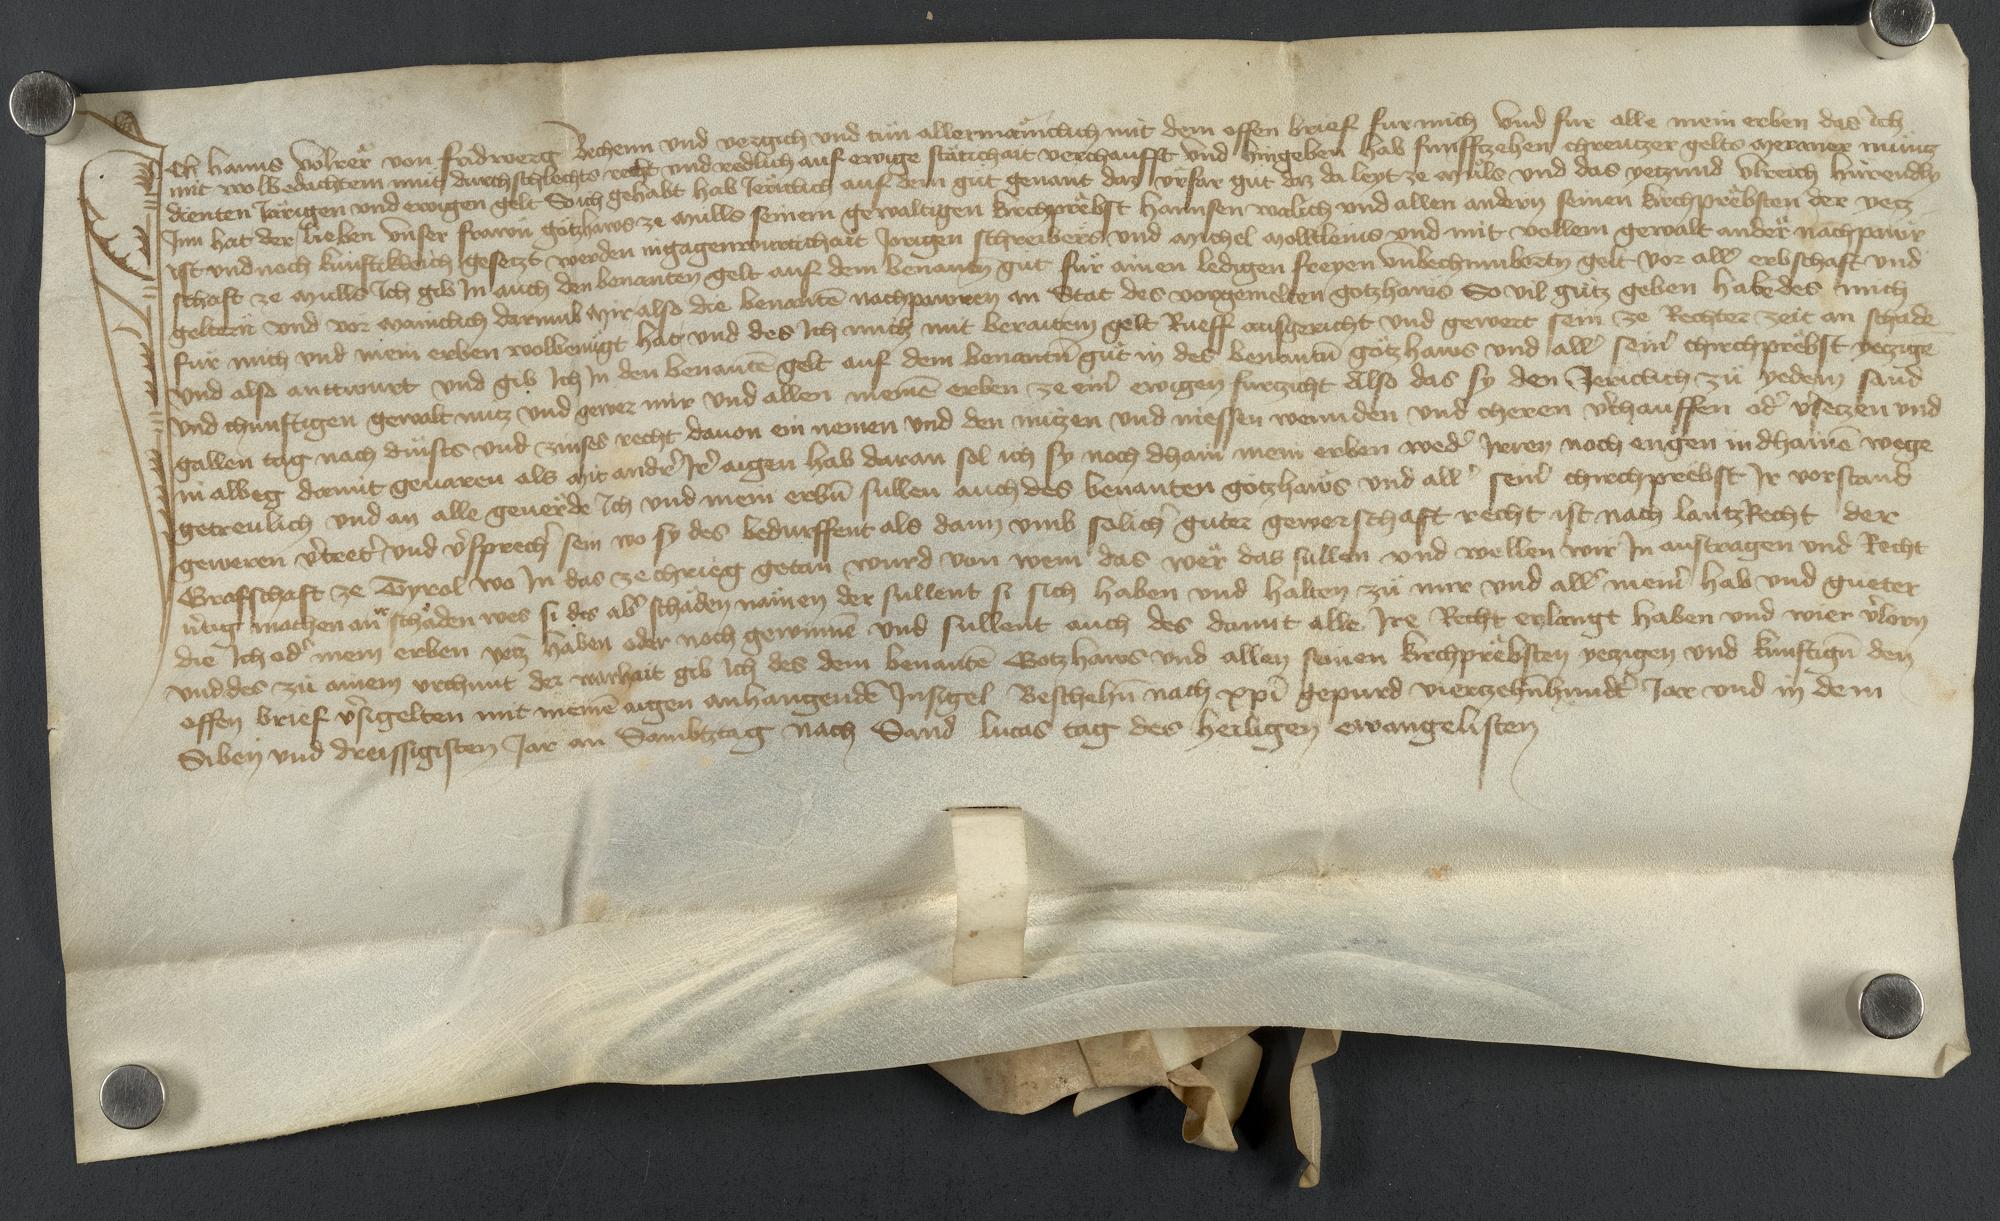 Ich hanns Volrer von fridwerg Bechenn vnd vergich vnd tun allermaniclich mit dem offen brief fur mich vnd fur alle mein erben das ich
mit wolbedachtem mut durchschlechts recht vnd redlich auf ewige stätichait verchaufft vnd hingeben hab funfftzehen chreutzer gelts meraner munitz
dienten Järigen vnd ewigen gelt So ich gehabt hab Järiclich auf dem gut genant daz vrfar gut daz da leyt ze Muls vnd das yetzund vlreich hurendly
Inn hat der lieben vnser frawn gotzhaws ze Mulls seinem gewaltigen kirchprebst hannsen walich vnd allen andern seinen kirchprebsten der yetz
ist vnd noch kunfticleich gesetzt werden ingagenwurtichait Jorigen schreibers vnd Michel Molkleins vnd mit vollem gewalt ander nachpawr
schaft ze Mulls Ich gib In auch den benanten gelt auf dem benanten gut fur ainen ledigen freyen vnbechumberten gelt vor all erbschaft vnd
geltern vnd vor maniclich darumb mir also die benante nachpawren an Stat des vorgemelten gotzhaws So vil gutz geben habe des mich
fur mich vnd mein erben wolbenugt hat vnd des Ich mich mit beraitem gelt Rueff ausgericht vnd gewert sein ze Rechter zeit an schade
vnd also anttwurt vnd gib Ich In den benante gelt auf dem benantn gut in des benantn gotzhaws vnd all sein chirchprebst yetzige
vnd chunftigen gewalt nutz vnd gewer mir vnd allen meine erben ze eim ewigen furzicht Also das sy den Jericlich zu yedem sand
gallen tag nach dinsts vnd zinses recht dauon ein nemen vnd den nutzen vnd niessen wenden vnd cheren v'chauffen od' v'setzen vnd
in albeg damit geuaren als mit andr' Ir' aigen hab daran sol ich sy noch dhain mein erben wed' Irren noch engen in dhaine wege
getreulich vnd an alle geuerde Ich vnd mein erbn sullen auch des benanten gotzhaws vnd all' sein' chirchprebst Ir vorstand
geweren v'tret' vnd v'sprech' sein wo sy des bedurffent als dann vmb solich' guter gewerschaft recht ist nach lantzRecht der
Grafschaft ze Tyrol wo In das ze chrieg getan wurd von wem das wer das sullen vnd wellen wir In austragen vnd Recht
v'tig machen an ir schaden wes si des ab' schaden namen der sullent si sich haben vnd halten zu mir vnd all' mein' hab vnd gueter
die Ich od' mein erben yetz haben oder noch gewinne vnd sullent auch des damit alle Ire Recht erlangt haben vnd wier v'lorn
vnd des zu ainem vrchunt der warhait gib Ich des dem benante Gotzhaws vnd allen seinen kirchprebsten yetzigen vnd kunftign den
offen brief v'sigelten mit meine aigen anhangende Insigel Beschehn nach xpi gepurd vierzehnhundt' Jar vnd in dem
Siben vnd dreissigisten Jar an Sambtztag nach Sand lucas tag des heiligen ewangelisten